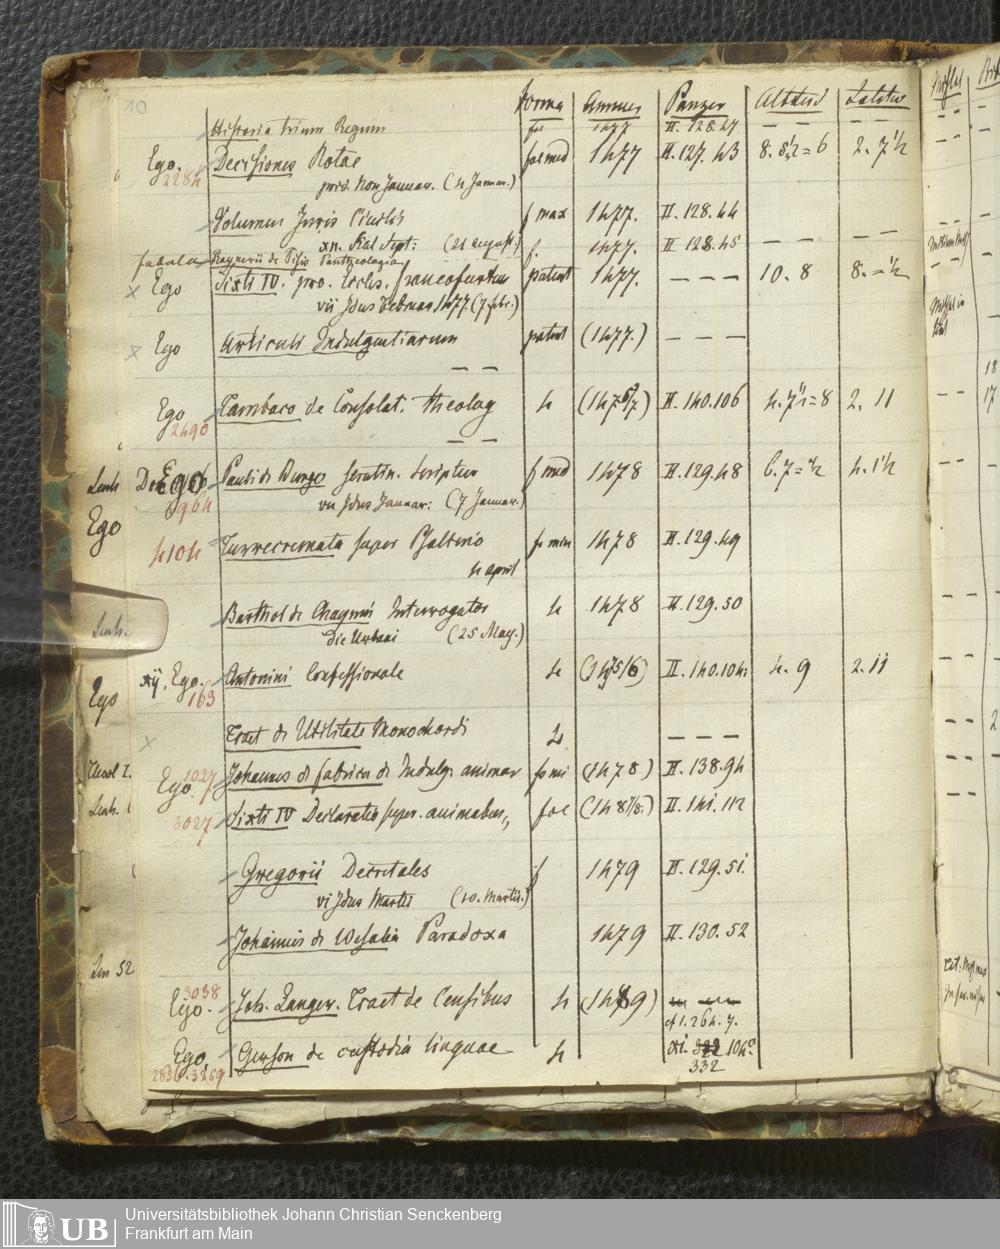 10
Forma Annus Panzer
Historia trium Regum fol 1477 II. 128.47 — — — —
Ego. Decisiones Rotae fol med 1477 II. 127. 43 8. 8½ = 6 2. 7½
2284
prid. Non Januar. (4 Januar.)
Volumen Juris Civilis f max 1477. II. 128. 44
xii. Kal Sept: (21 august.) f. 1477. II 128.45 — — — —
fabula Raynerii de Pisis Pantheologia
x Ego Sixti IV. pro. Eccles. francofurten patent 1477. — — — 10. 8
vii Idus Februar 1477. (7 febr.)
x Ego Articuli Indulgentiarum patent (1477.) — — —
— —
Ego Tambaco de Consolat. theolog 4 (1476/7) II. 140.106 2. 11
2490
— —
Ego Pauli de Burgo Scrutin. Scriptur f med 1478 II. 129.48 4. 1½
vii Idus Januar: (7 Januar.)
Ego
4104 Turrecremata super Psalterio f. min 1478 II. 129. 49
4 april
Barthol de Chaymis Interrogator 4 1478 II. 129. 50
Die Urbani (25 May.)
Ego. Antonini Confessionale 4 (1475/6) II. 140.104. 4. 9 2. 11
163
Ego
x Tract de Utilitate Monochordi 4 — — —
Ego. 1027 Johannis de fabrica de Indulg. animar fo mi (1478) II. 138.94
3027 Sixti IV Declaratio super. animabus, fol (1487/8.) II. 141. 112
Gregorii Decretales f 1479 II. 129. 51.
vi Idus Martis (10. Martis.)
Johannis de Wesalia Paradoxa 1479 II. 130. 52
Len 52
3038
Ego. Joh. Langer. Tract de Censibus 4 (1489)
cf 1. 264. 7.
Ego Gerson de custodia linguae 4 XI. 322 104.
2836. 3269 332
UB Universitätsbibliothek Johann Christian Senckenberg
Frankfurt am Main